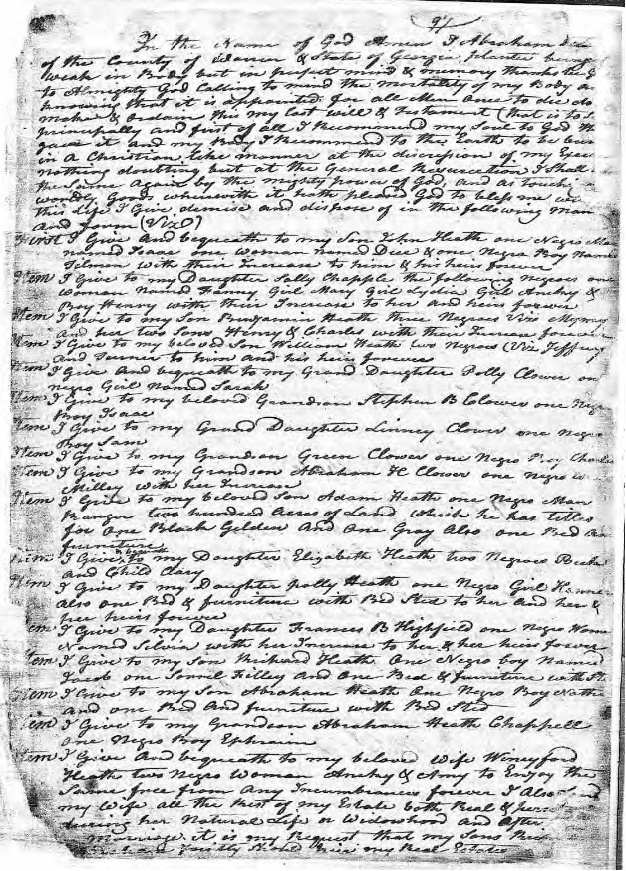 97
In the Name of God Amen I Abraham
of the County of & State of Georgia planter being
weak in Body but in perfect mind & memory thanks be
to Almighty God Calling to mind the mortality of my Body
knowing that it is appointed for all Men once to die do
make & ordain this my last will & Testament (that is to
principally and first of all I Recommend my Soul to God
gave it and my Body I Recommend to the Earth to be
in a Christian like manner at the discression of my
nothing doubting but at the General Resurrection I Shall
the Same again by the mighty power of God, and as touch
worldy Goods wherewith it hath pleased God to bless me
this life I Give demise and dispose of in the following man
and form (Viz)
First I Give And bequeath to my Son John Heath one Negro Man
named Isaac one Woman named Dice & one Negro Boy Name
Tilman with their Increase to him & his heirs forever
Item I Give to my Daughter Sally Chappel the following Negroes one
Woman Named Fanny Girl Mary Girl Girl &
Boy Henry with their Increase to her and heirs forever
Item I Give to my Son Benjamin Heath three Negroes Viz
and her two Sons Henry & Charles with their Increase forever
Item I Give to my beloved Son William Heath two Negroes (Viz Jeffrey
and to him and his heirs forever
Item I Give And bequeath to my Grand Daughter Polly Clower
negro Girl Named Sarah
Item I Give to my beloved Grandson Stephen B Clower one
Boy Isaac
Item I Give to my Grand Daughter Linney Clower one negro
Boy Sam
Item I Give to my Grandson Green Clower one Negro Boy Charles
Item I Give to my Grandson Abraham H Clower one negro
Milley with her Increase
Item I Give to my beloved Son Adam Heath one Negro Man
two hundred Acres of Land which he has titles
for One Black Gelden And One Gray Also one Bed And
furniture
Item I Give & bequeath to my Daughter Elizabeth Heath two Negroes
and Child
Item I Give to my Daughter polly Heath one Negro Girl
Also one Bed & furniture with Bed Sted to her And her &
her heirs forever
Item I Give to my Daughter Frances B Highfield one Negro
Named Silvia with her Increase to her & her heirs forever
Item I Give to my Son Richard Heath One Negro boy Named
Jacob one Filley And One Bed & furniture with
Item I Give to my Son Abraham Heath One Negro Boy
and one Bed And furniture with Bed Sted
Item I Give to my Grandson Abraham Heath Chappell
one Negro Boy Ephraim
Item I Give And bequeath to my beloved Wife
Heath two Negro Woman & Amy to Enjoy the
Same free from Any Incumbrance forever I Also
my Wife all the Rest of my Estate both Real &
during her Natural Life or Widowhood And After
marriage it is my Request that my Sons
my Real Estate